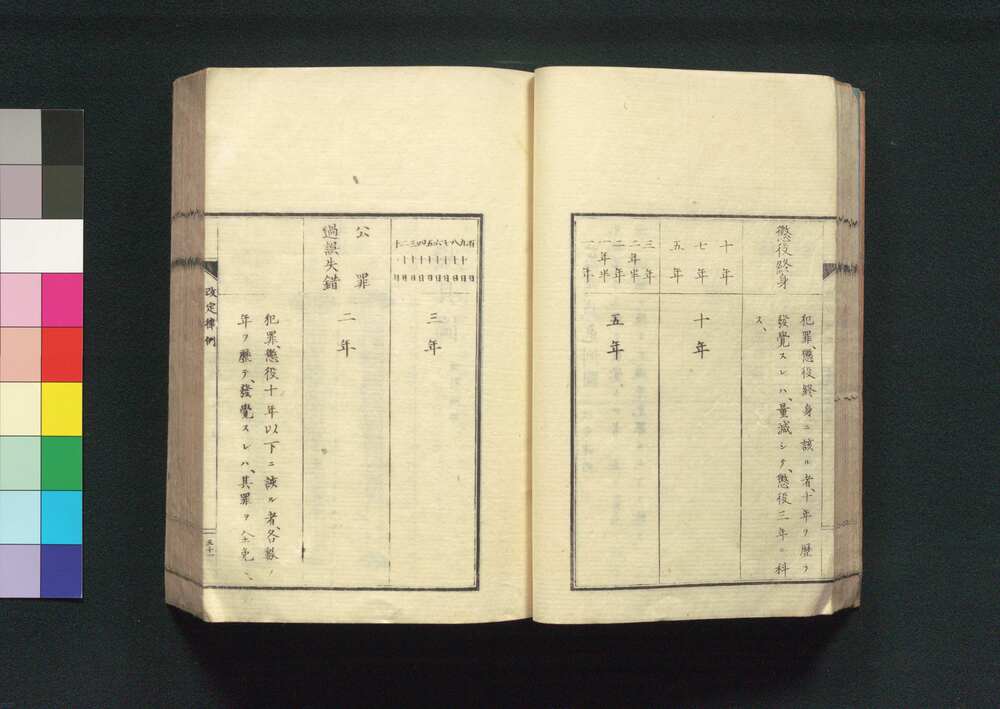 懲役終身
犯罪、懲役終身ニ該ル者、十年ヲ歷テ
發覺スレハ、量減シテ、懲役三年ニ科
ス、
十年
七年
五年
十年
三年
二年半
二年
一年半
一年
五年
百日
九十日
八十日
七十日
六十日
五十日
四十日
三十日
二十日
十日
三年
公罪
過誤失錯
二年
犯罪、懲役十年以下ニ該ル者、各
年ヲ歷テ、發覺スレハ、其罪ヲ全免
改定律例
三十一